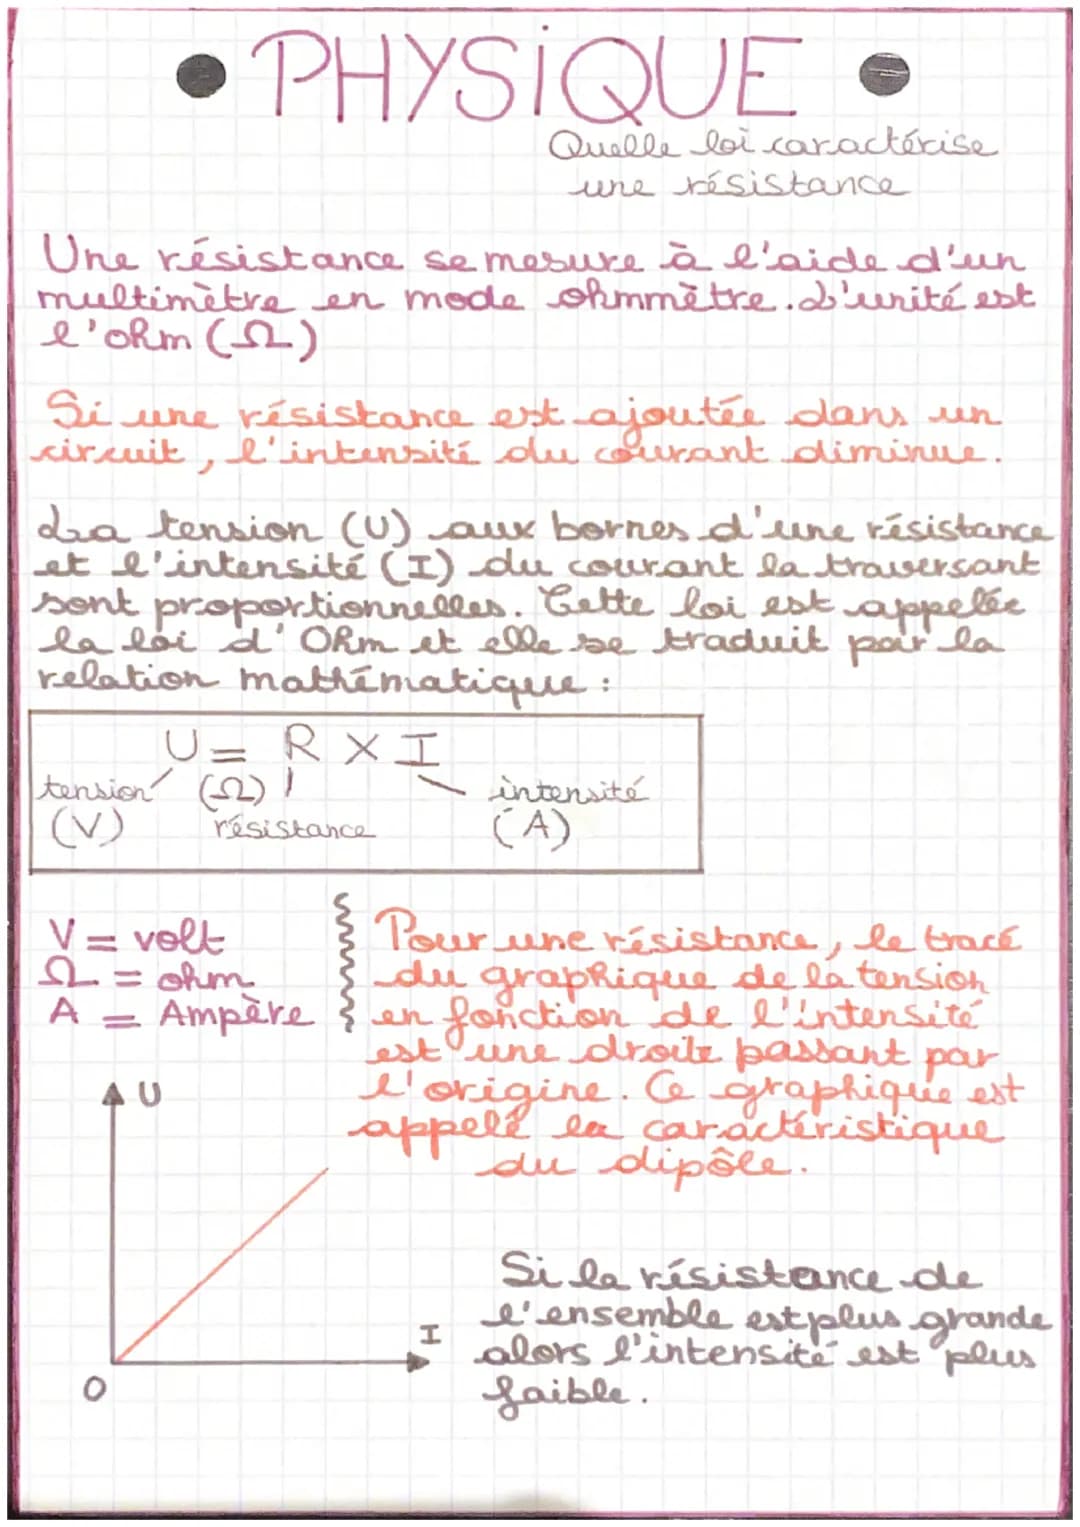 • PHYSIQUE •
Quelle loi caractérise
une résistance
Une résistance se mesure à l'aide d'un
multimètre en mode ohmmètre. L'unité est
l'ohm (Ω)
Si une résistance est ajoutée dans un
circuit, l'intensité du courant diminue.
La tension (U) aux bornes d'une résistance
et l'intensité (I) du courant la traversant
sont proportionnelles. Cette loi est appelée
la loi d'Ohm et elle se traduit par la
relation mathématique :
U = R X I
tension (Ω) intensité
(V) résistance (A)
V = volt
Ω = ohm
A = Ampère
Pour une résistance, le tracé
du graphique de la tension
en fonction de l'intensité
est une droite passant par
l'origine. Ce graphique est
appelé la caractéristique
du dipôle.
U
I
O
Si la résistance de
l'ensemble est plus grande
alors l'intensité est plus
faible.